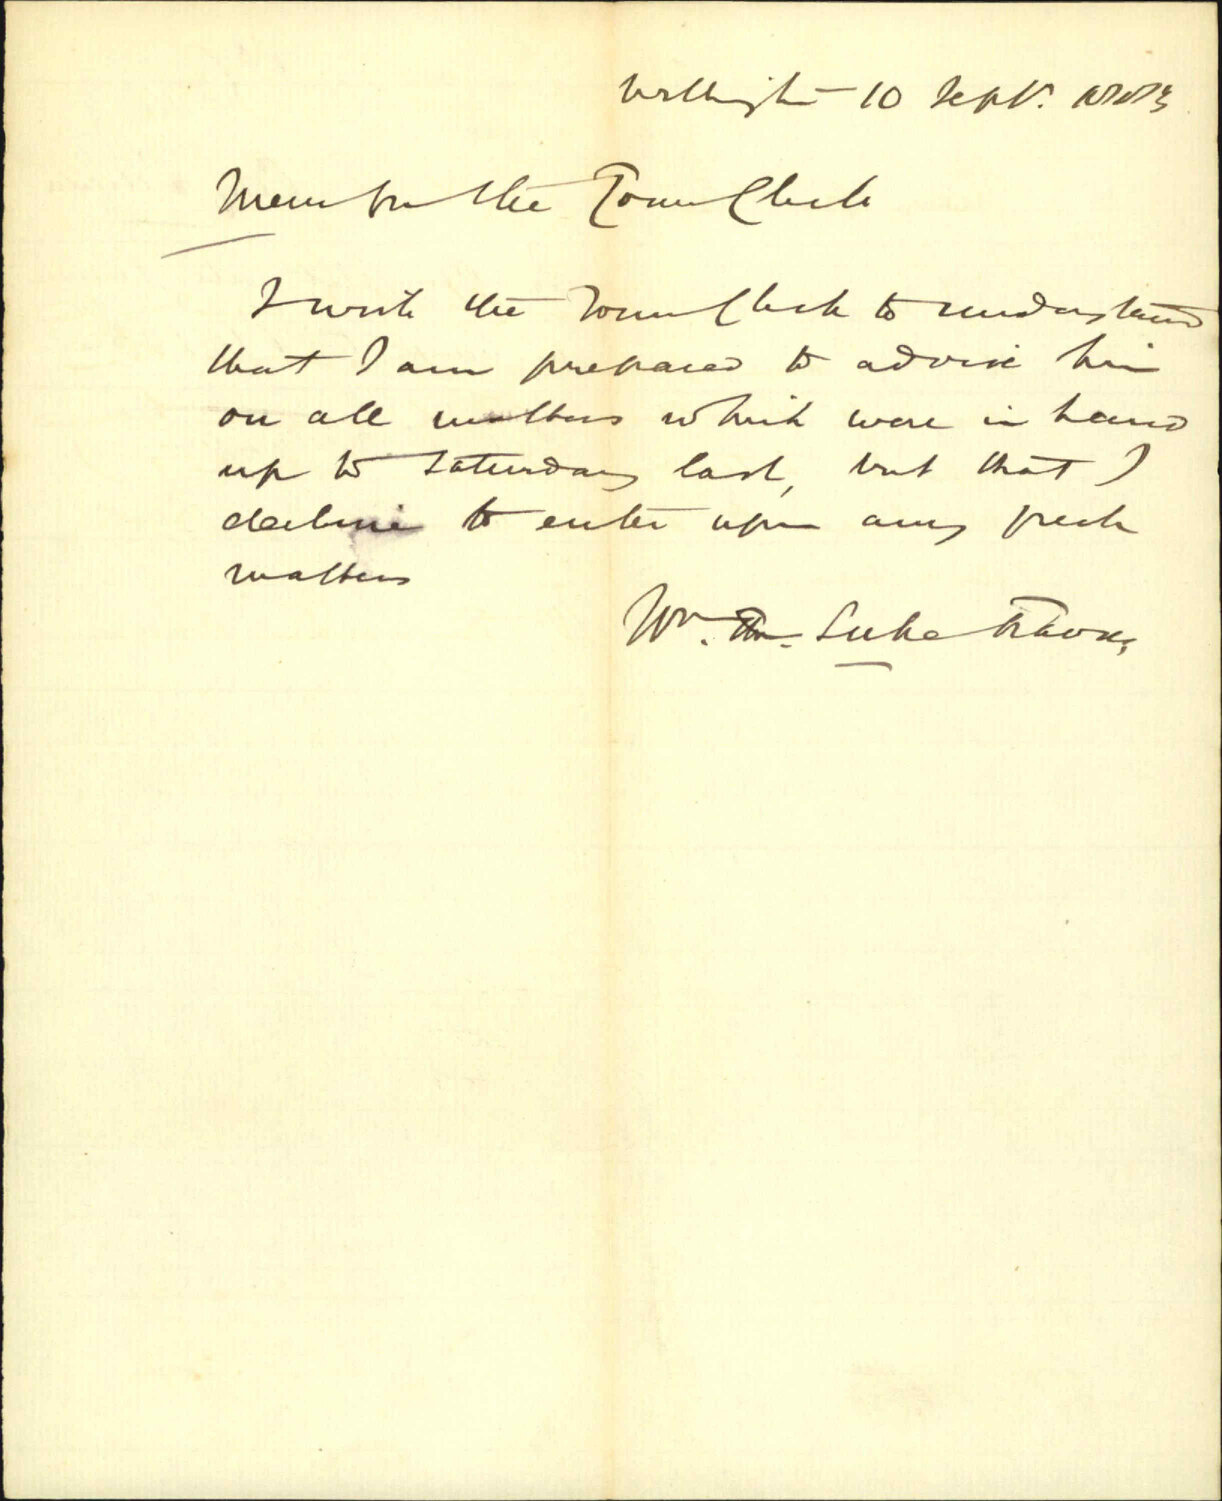 Wellington 10 Sept. 1883
Mem for the Town Clerk
I wish the Town Clerk to understand
that I am prepared to advise him
on all matters which were in hand
up to Saturday last, but that I
decline to enter upon any fresh
matters
Wm. Thos. Locke Travers